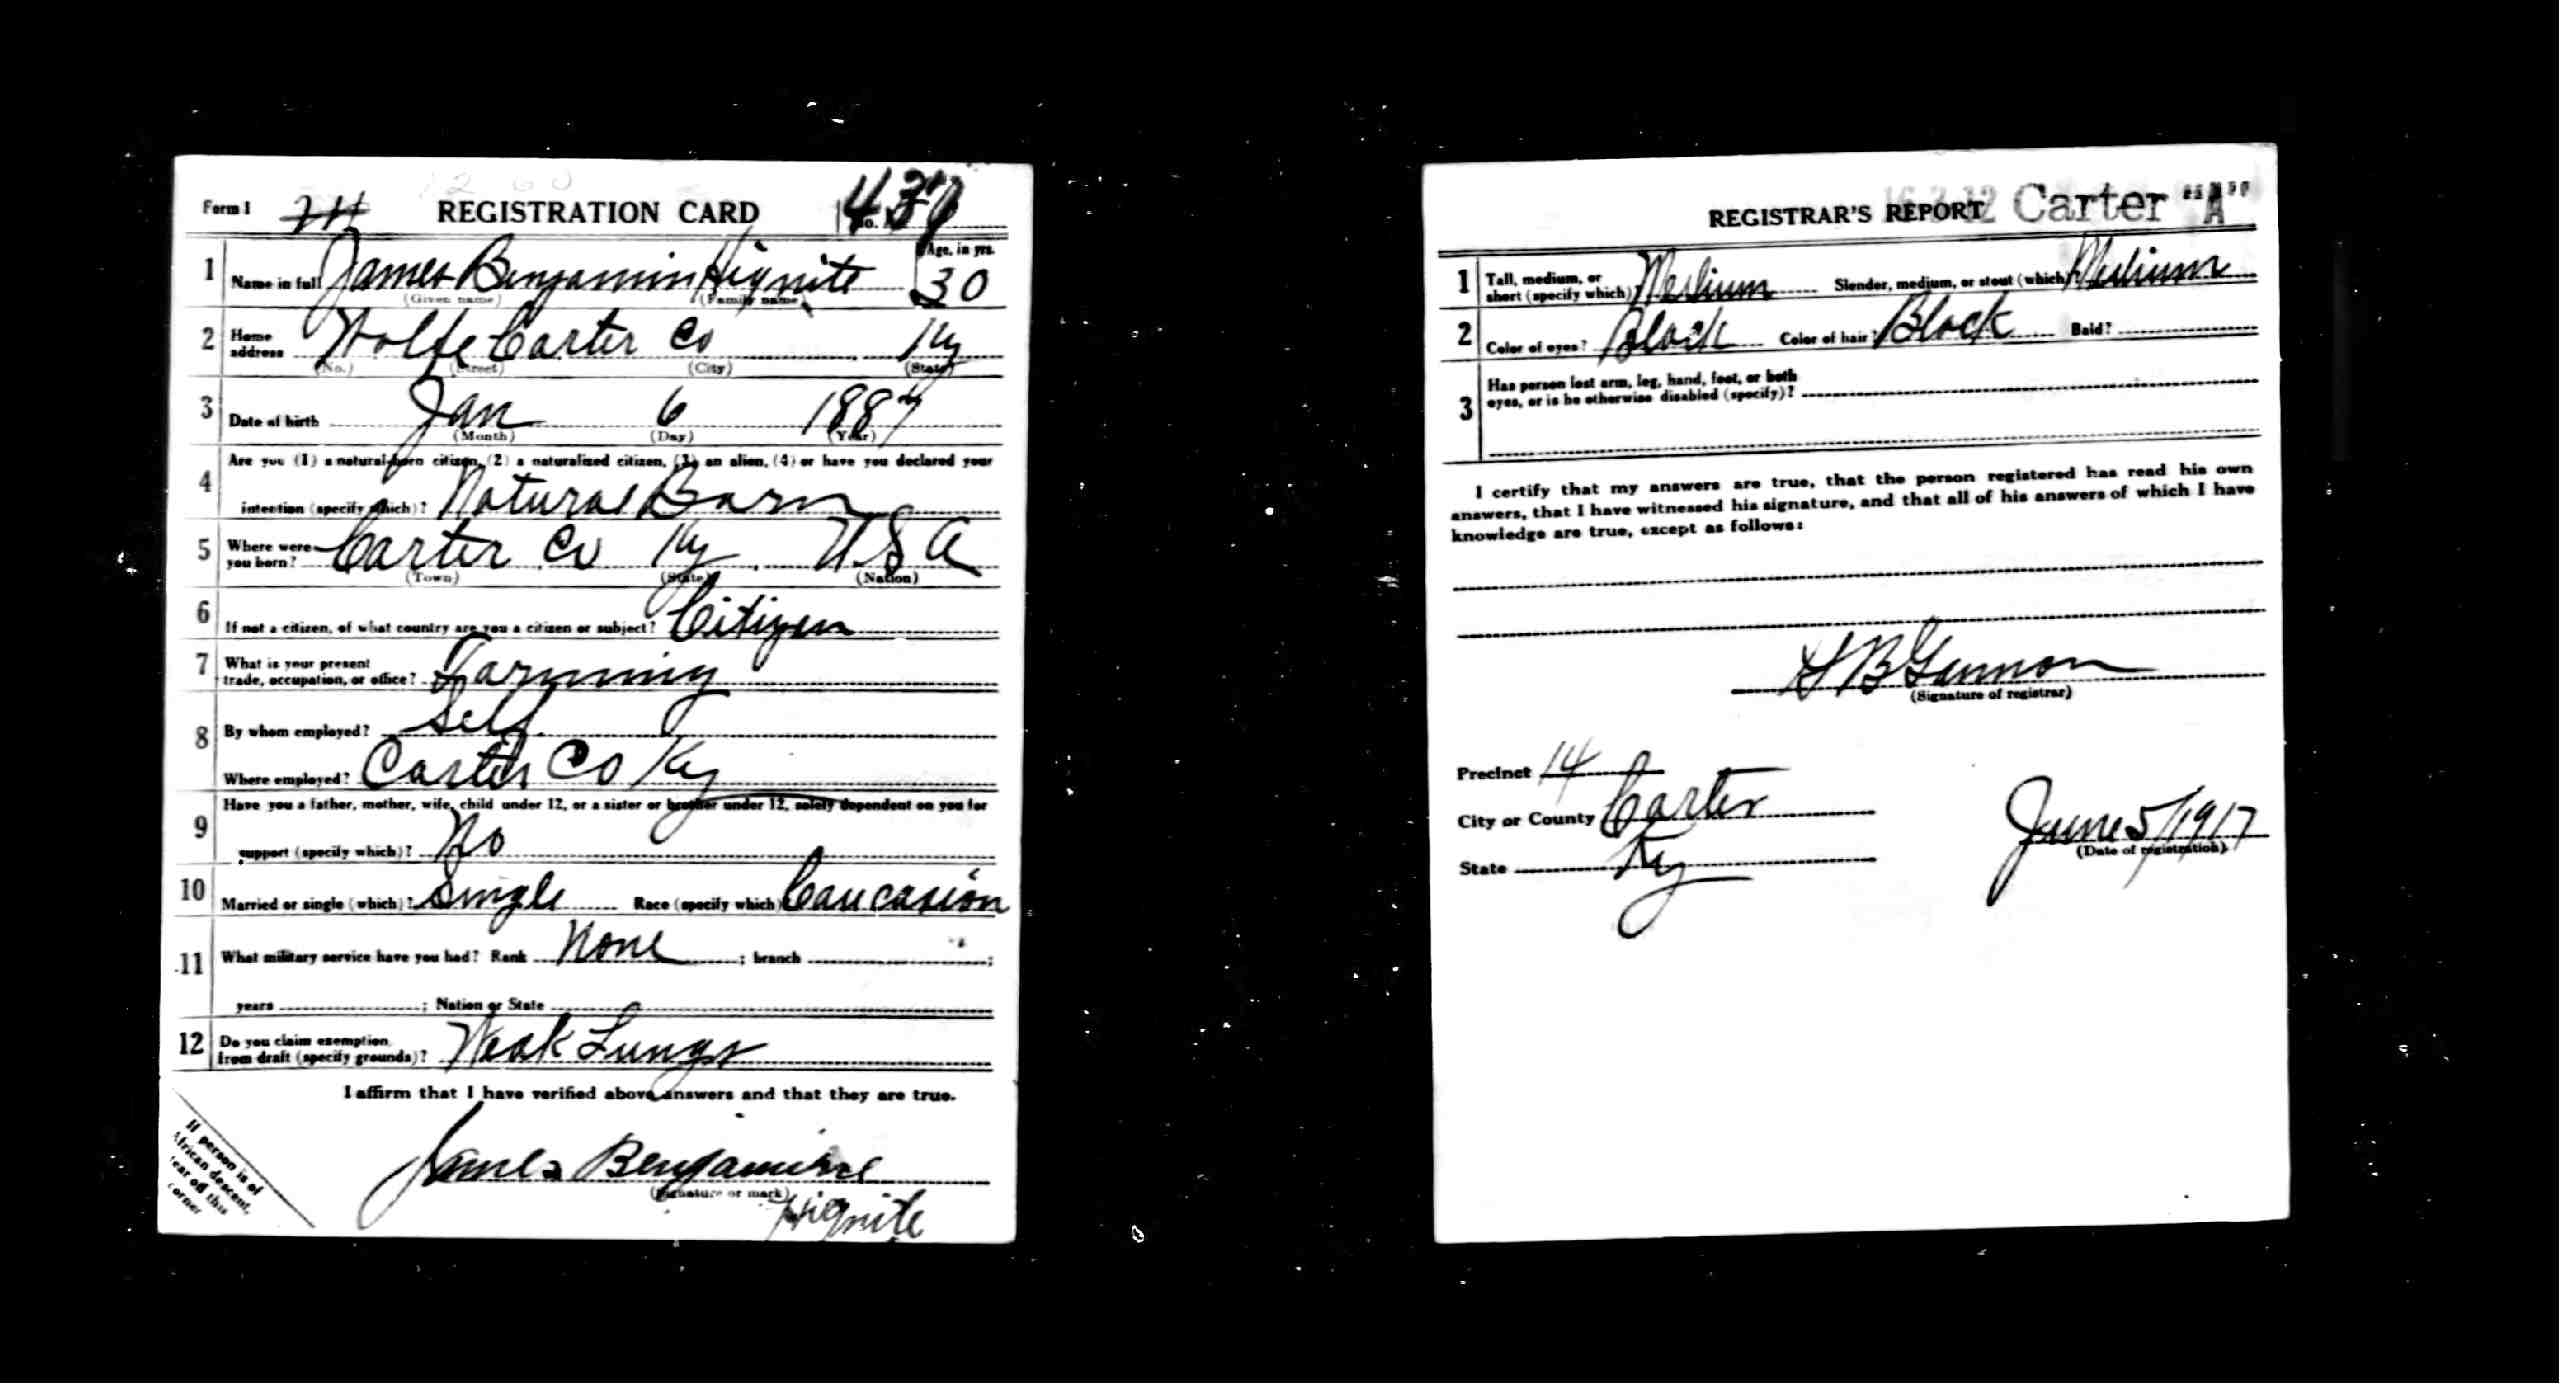 Form 1 REGISTRATION CARD No.
1 Name in full James Benjamin Hignite Age, in yrs. 30
(Given name) (Family name)
2 Home address Wolfe Carter Co Ky
(No.) (Street) (City) (State)
3 Date of birth Jan 6 1887
(Month) (Day) (Year)
4 Are you (1) a natural-born citizen, (2) a naturalized citizen, (3) an alien, (4) or have you declared your
intention (specify which)? Natural Born
5 Where were you born? Carter Co Ky USA
(Town) (State) (Nation)
6 If not a citizen, of what country are you a citizen or subject? Citizen
7 What is your present trade, occupation, or office? Farming
8 By whom employed? Self
Where employed? Carter Co Ky
9 Have you a father, mother, wife, child under 12, or a sister or brother under 12, solely dependent on you for
support (specify which)? No
10 Married or single (which)? Single Race (specify which) Caucasion
11 What military service have you had? Rank None ; branch ;
years ; Nation or State
12 Do you claim exemption from draft (specify grounds)? Weak Lungs
I affirm that I have verified above answers and that they are true.
James Benjamine
(Signature or mark)
Hignite
If person is of
African descent,
tear off this
corner
REGISTRAR'S REPORT Carter "A"
1 Tall, medium, or short (specify which)? Medium Slender, medium, or stout (which)? Medium
2 Color of eyes? Black Color of hair? Black Bald?
3 Has person lost arm, leg, hand, foot, or both
eyes, or is he otherwise disabled (specify)?
I certify that my answers are true, that the person registered has read his own
answers, that I have witnessed his signature, and that all of his answers of which I have
knowledge are true, except as follows:
(Signature of registrar)
Precinct 14
City or County Carter
State Ky
June 5/1917
(Date of registration)